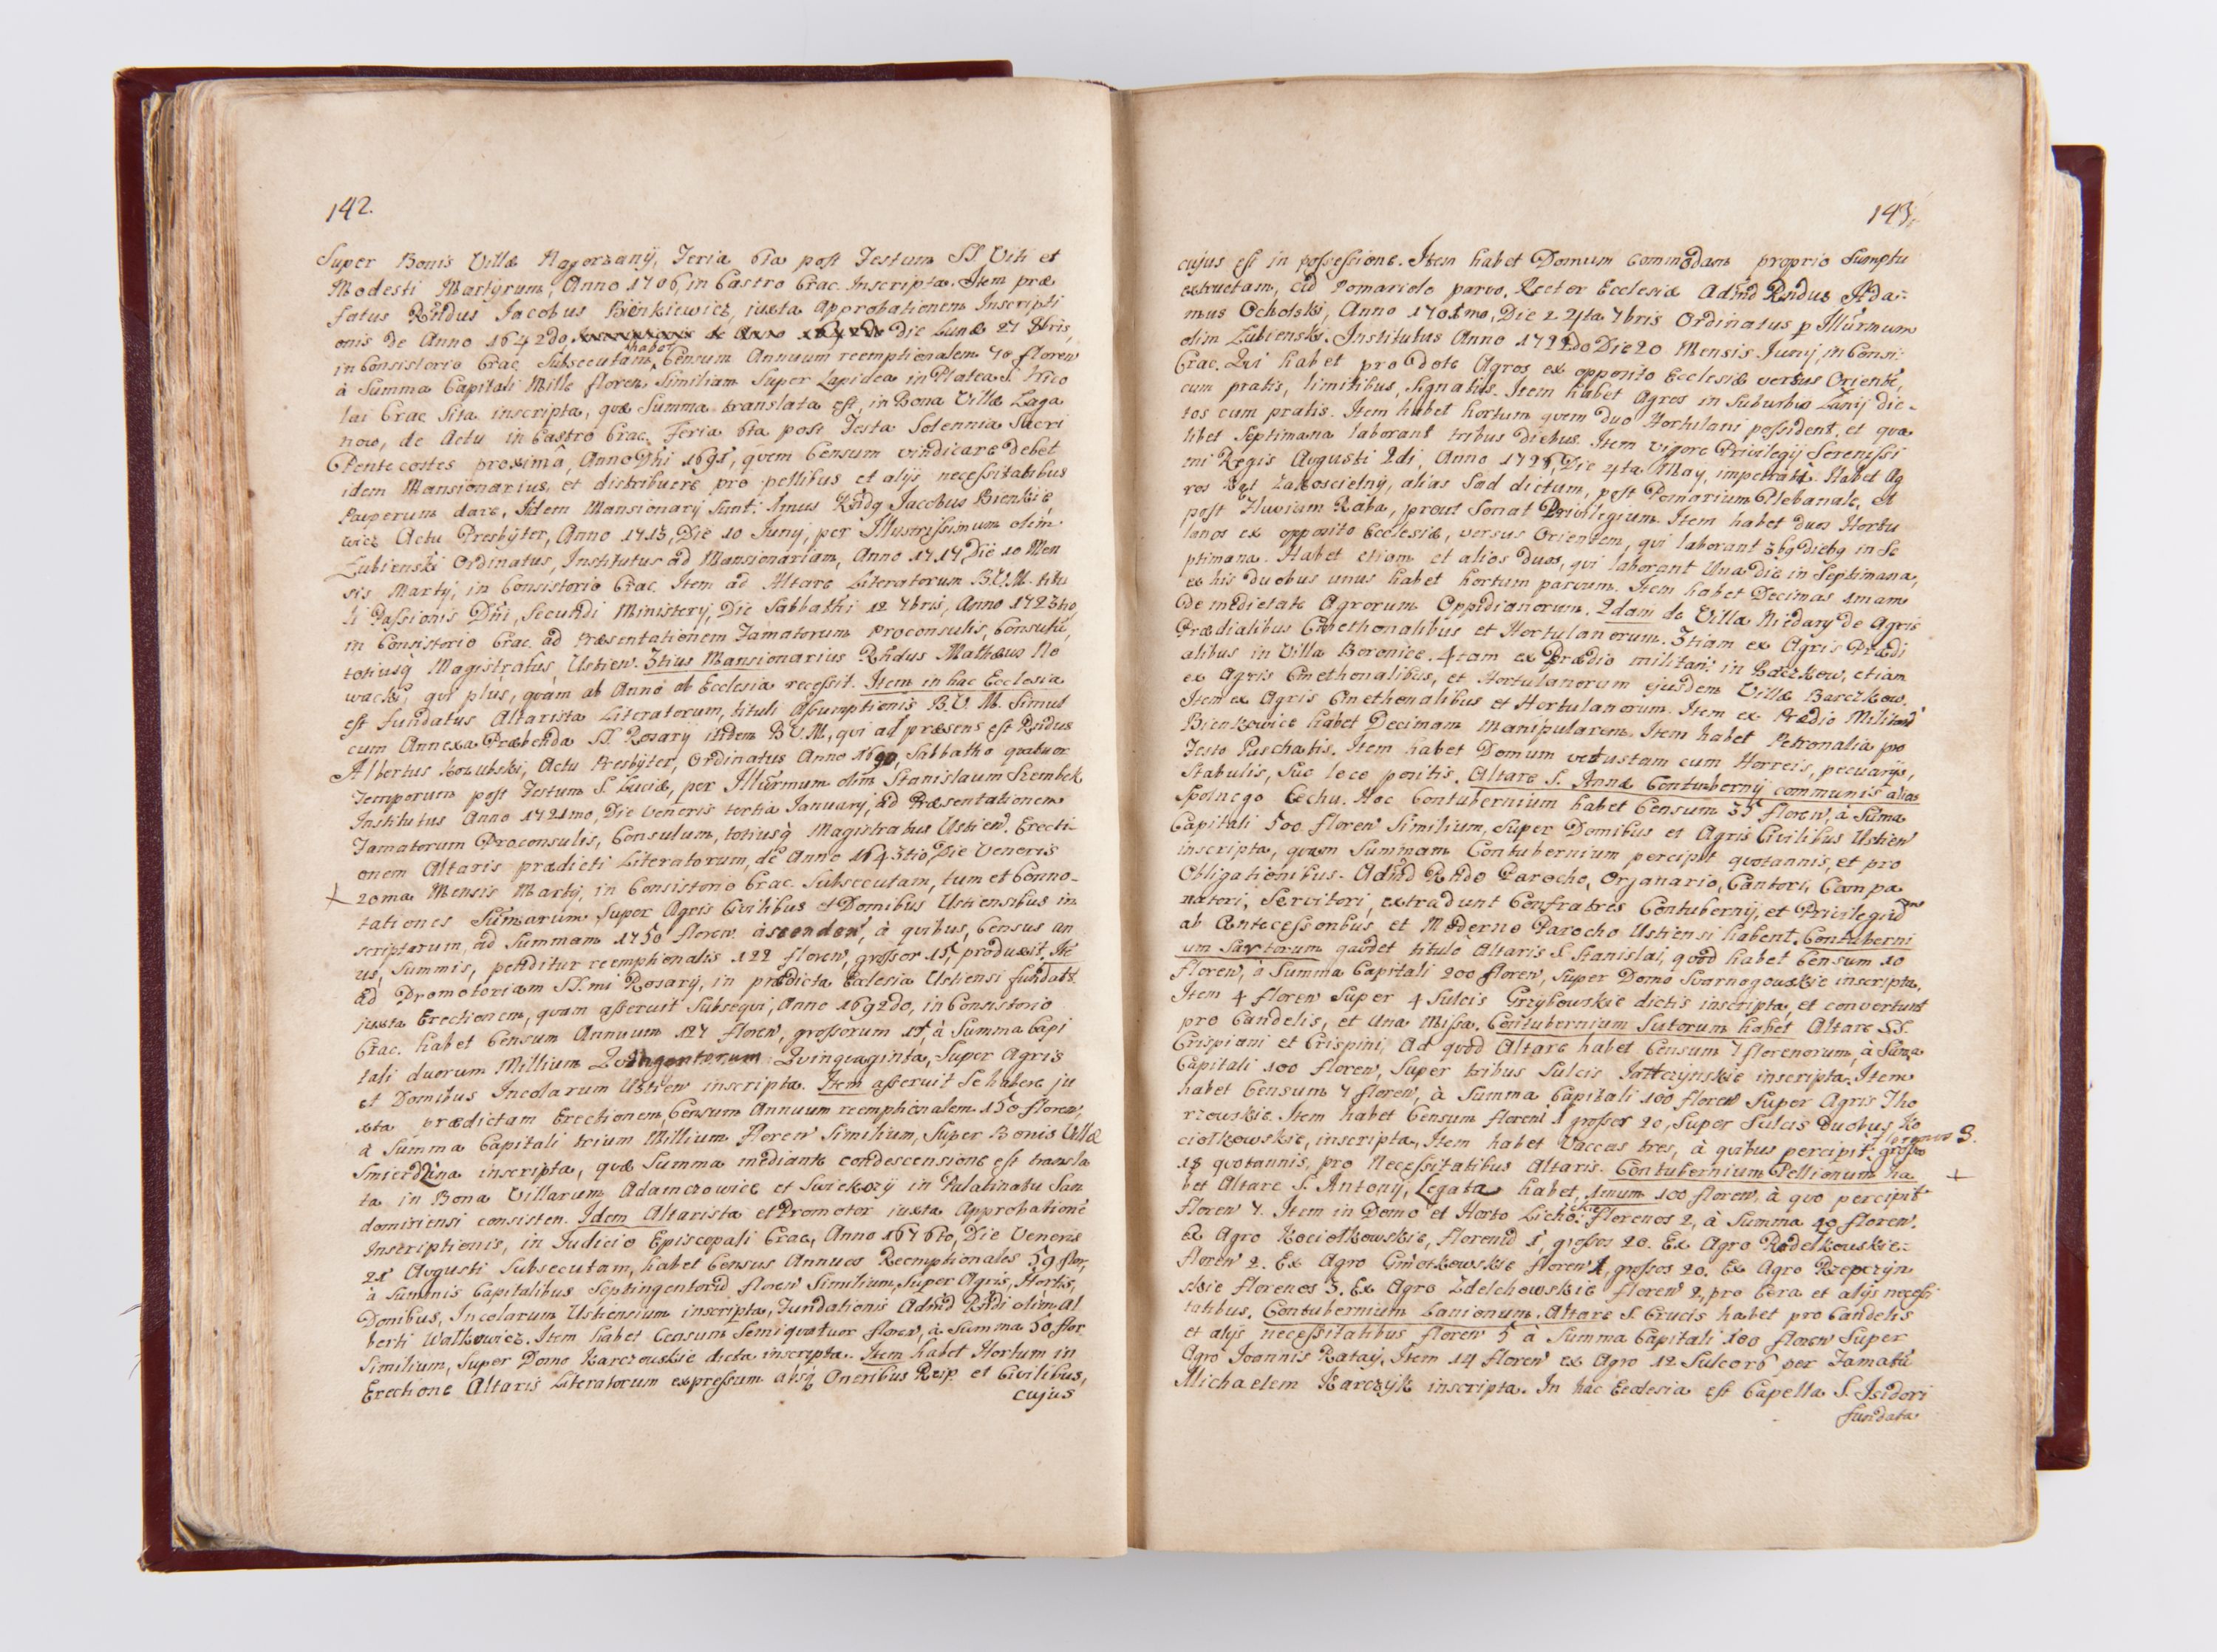 142.
Super Bonis Villæ Nagorzany, Feria 6ta post Festum SS. Viti et
Modesti Martyrum, Anno 1706, in Castro Crac. Inscripta. Item præ
fatus Rndus Jacobus Bienkiewicz, juxta Approbationem Inscripti
onis de Anno 1642do, Die Lunæ 27 8bris,
in Consistorio Crac. Subsecutam, habet Censum Annuum reemptionalem 70 floren
à Summa Capitali Mille floren. Similium Super Lapidea in Platea S. Nico
lai Crac. Sita inscripta, quæ Summa translata est, in Bona Villæ Zaga
now, de Actu in Castro Crac. Feria 6ta post Festa Solennia Sacri
Pentecostes proximâ, Anno Dni 1695, quem Censum vindicare debet
idem Mansionarius, et distribuere pro pellibus et alijs necessitatibus
Pauperum dare, Idem Mansionarij Sunt: 1mus Rndq Jacobus Bienkie
wicz Actu Presbyter, Anno 1713, Die 10 Junij, per Illustrissimum olim
Łubienski Ordinatus, Institutus ad Mansionariam, Anno 1717, Die 10 Men
sis Martij, in Consistorio Crac. Item ad Altare Literatorum B.V.M. titu
li Passionis Dni, Secundi Ministerij, Die Sabbathi 12 7bris, Anno 1723tio,
in Consistorio Crac. ad Præsentationem Famatorum Proconsulis, Consulũ,
totiusq Magistratus, Ustien. 3tius Mansionarius Rndus Mathæus No
wacki, qui plus, quam ab Anno ab Ecclesia recessit. Item in hac Ecclesia
est fundatus Altarista Literatorum, tituli Assumptionis B.V.M. Simul
cum Annexa Præbenda SS. Rosarij itidem B.V.M, qui ad præsens est Rndus
Albertus Kozubski, Actu Presbyter, Ordinatus Anno 1690, Sabbatho quatuor
Temporum post Festum S. Luciæ, per Illũrmum olim Stanislaum Szembek
Institutus Anno 1721mo, Die Veneris tertia January, ad Præsentationem
Famatorum Proconsulis, Consulum, totiusq Magistratus Ustien. Erecti-
onem Altaris prædicti Literatorum, de Anno 1643tio, Die Veneris
+ 20ma Mensis Martij, in Consistorio Crac. Subsecutam, tum et Conno-
tationes Sumarum, Super Agris Civilibus et Domibus Ustiensibus in
scriptarum, ad Summam 1750 floren. ascenden, à quibus, Census an
us, Summis, penditur reemptionalis 122 floren, grossor 15, produxit. Itẽ
ad Promotoriam SS.mi Rosarij, in prædicta Ecclesia Ustiensi fundat.
juxta Erectionem, quam asseruit Subsequi, Anno 1692do, in Consistorio
Crac. habet Censum Annuum 127 floren, grossorum 15, à Summa Capi
tali duorum Millium Quingentorum Quinquaginta, Super Agris
et Domibus Incolarum Ustien inscripta. Item asseruit Se habere ju
xta prædictam Erectionem, Censum Annuum reemptionalem 150 floren,
à Summa Capitali trium Millium floren Similium, Super Bonis Villæ
Smierdząca inscripta, quæ Summa mediante condescensione est transla
ta in Bona Villarum Adamczowice et Swiekozy in Palatinatu San
domiriensi consisten. Idem Altarista et Promotor juxta Approbationẽ
Inscriptionis, in Judicio Episcopali Crac, Anno 1676to, Die Veneris
21 Augusti Subsecutam, habet Census Annuos Reemptionales 59 flor,
à Summis Capitalibus Septingentorũ floren Similium, Super Agris, Hortis,
Domibus, Incolarum Ustiensium inscripta, Fundationis Admd Rndi olim Al
berti Walkowicz. Item habet Censum Semiquatuor floren, à Summa 50 flor
Similium, Super Domo Karczowskie dicta inscripta. Item habet Hortum in
Erectione Altaris Literatorum expressum absq Oneribus Reip. et Civilibus,
cujus
143.
cujus est in possessione. Item habet Domum commodam proprio Sumptu
extructam, cũ Pomariolo parvo. Rector Ecclesiæ Admd Rndus Ada-
mus Ochotski, Anno 1701mo, Die 24ta 7bris Ordinatus p Illũrmum
olim Łubienski. Institutus Anno 1722do Die 20 Mensis Junij, in Consi:
Crac. Qui habet pro dote Agros ex opposito Ecclesiæ versus Orientẽ,
cum pratis, limitibus, Signatis. Item habet Agros in Suburbio Zanij dic-
tos cum pratis. Item habet hortum quem duo Hortulani possident, et qua
libet Septimana laborant tribus diebus. Item vigore Privilegij Serenissi
mi Regis Augusti 2di, Anno 1728, Die 4ta May, impetrati. Habet Ag
ros vel Zakoscielny, alias Sad dictum, post Pomarium Plebanale, et
post Fluvium Raba, prout Sonat Privilegium. Item habet duos Hortu
lanos ex opposito Ecclesiæ, versus Orientem, qui laborant 3bq diebq in Se
ptimana. Habet etiam et alios duos, qui laborant Una die in Septimana,
ex his duobus unus habet hortum parvum. Item habet Decimas 1mam
de medietate Agrorum Oppidianorum. 2dam de Villa Niedary de Agris
Prædialibus Cmethonalibus et Hortulanorum. 3tiam ex Agris Prædi
alibus in Villa Boronice. 4tam ex Prædio militari in Barczkow, etiam
ex Agris Cmethonalibus, et Hortulanorum ejusdem Villæ Barczkow.
Item ex Agris Cmethonalibus et Hortulanorum. Item ex Prædio Militari
Bienkowice habet Decimam Manipularem. Item habet Petronalia pro
Festo Paschatis. Item habet Domum vetustam cum Horreis, pecuarijs,
Stabulis, Suo loco positis. Altare S. Annæ Contubernij communis alias
Spolnego Cechu. Hoc Contubernium habet Censum 35 floren, à Suma
Capitali 500 floren Similium, Super Domibus et Agris Civilibus Ustien
inscripta, quam Summam Contubernium percipit quotannis, et pro
Obligationibus. Admd Rndo Parocho, Organario, Cantori, Campa
natori, Servitori, extradunt Confratres Contubernij, et Privilegiũ
ab Antecessoribus et Moderno Parocho Ustiensi habent. Contuberni
um Sartorum gaudet titulo Altaris S. Stanislai, quod habet Censum 10
floren, à Summa Capitali 200 floren, Super Domo Swarnogowskie inscripta.
Item 4 floren Super 4 Sulcis Grzybowskie dictis inscripta, et convertunt
pro Candelis, et Una Missa. Contubernium Sutorum habet Altare SS.
Crispiani et Crispini, Ad quod Altare habet Censum 7 florenorum, à Suma
Capitali 100 floren, Super tribus Sulcis Jattczynskie inscripta. Item
habet Censum 7 floren, à Summa Capitali 100 floren Super Agris Tho
rzowskie. Item habet Censum floreni 1 grossos 20, Super Sulcis Duobus, Ko
ciołkowskie, inscripta, Item habet Vaccas tres, à quibus percipit florenos 3. grosso
18 quotannis, pro Necessitatibus Altaris. Contubernium Pellionum ha +
bet Altare S. Antonij, Legata habet, 1mum 100 floren, à quo percipit
floren 7. Item in Domo et Horto Licho: florenos 2, à Summa 40 floren.
Ex Agro Kociołkowskie, florenũ 1, grossos 20. Ex Agro Radełkowskie:
floren 2. Ex Agro Gmotkowskie floren 1, grossos 20. Ex Agro Rzepczyn
skie florenos 3. Ex Agro Zdelchowskie floren 2, pro Cera et alijs necessi
tatibus. Contubernium Lanionum. Altare S. Crucis habet pro Candelis
et alijs necessitatibus floren 5 à Summa Capitali 100 floren Super
Agro Joannis Rataÿ. Item 14 floren ex Agro 12 Sulcorũ per Famatũ
Michaelem Karczyk inscripta. In hac Ecclesia est Capella S. Isidori
fundata